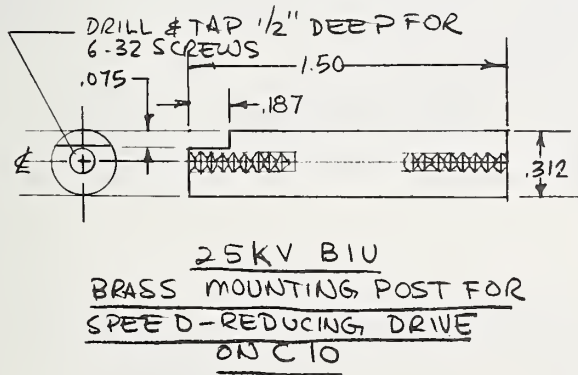 DRILL & TAP 1/2" DEEP FOR
6-32 SCREWS
1.50
.075
.187
℄
.312
25KV BIU
BRASS MOUNTING POST FOR
SPEED-REDUCING DRIVE
ON C10